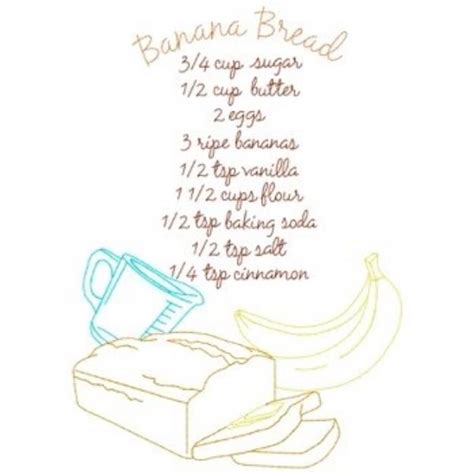 Banana Bread
3/4 cup sugar
1/2 cup butter
2 eggs
3 ripe bananas
1/2 tsp vanilla
1 1/2 cups flour
1/2 tsp baking soda
1/2 tsp salt
1/4 tsp cinnamon